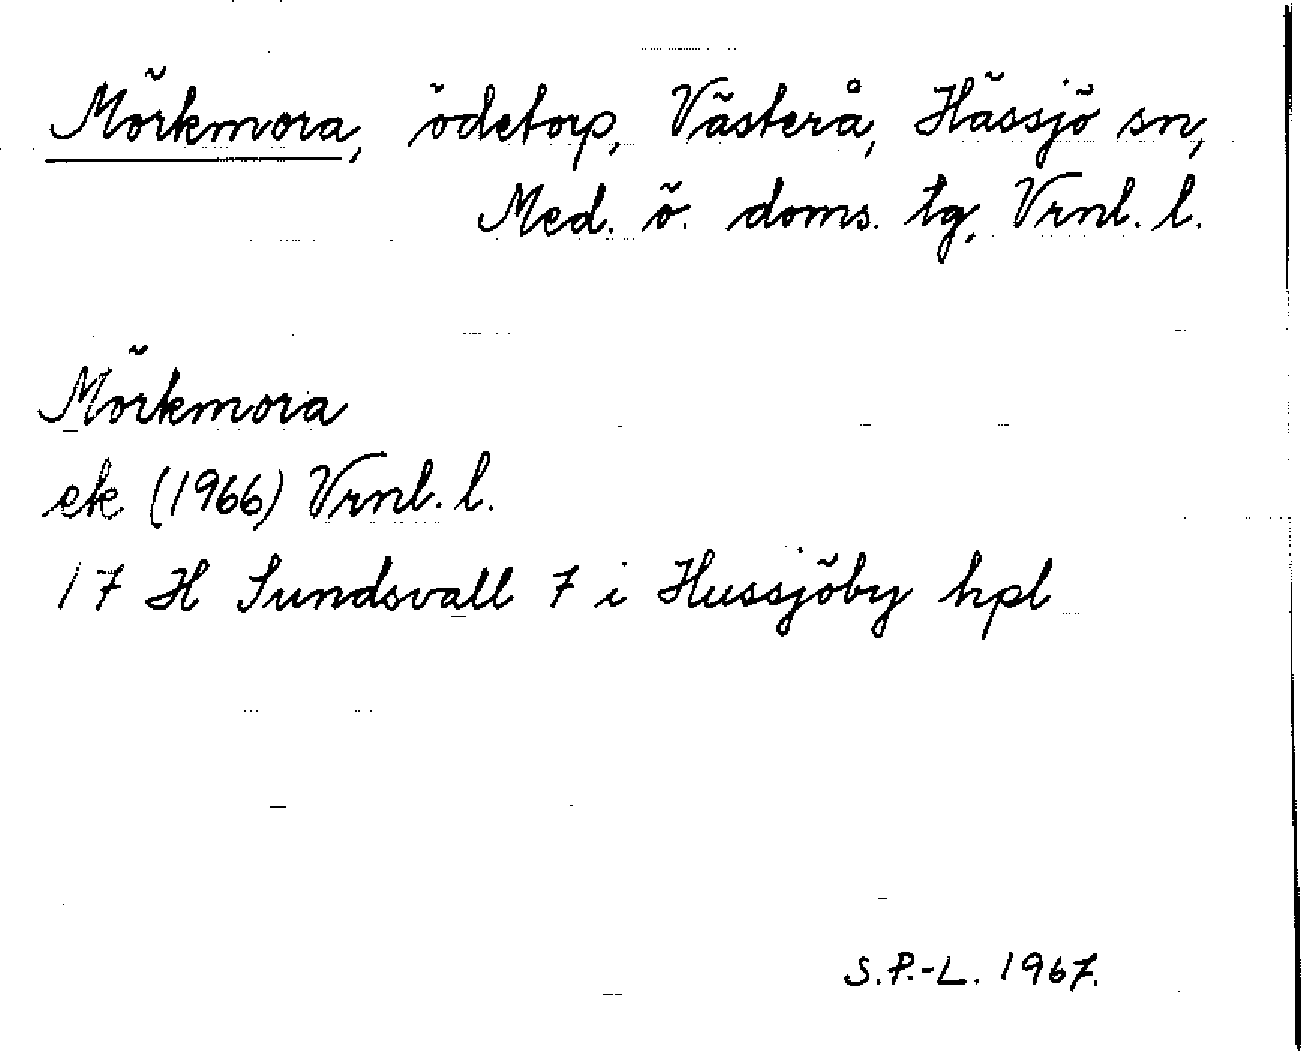 Mörkmora, ödetorp, Västerå, Hässjö sn,
Med. ö. doms. tg, Vrnl. l.
Mörkmora
ek (1966) Vrnl. l.
17 H Sundsvall 7 i Hussjöby hpl
S.P.-L. 1967.